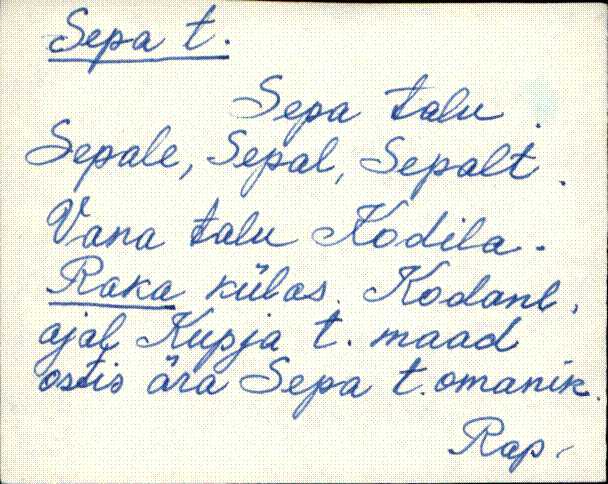 Sepa t.
Sepa talu.
Sepale, Sepal, Sepalt.
Vana talu Kodila-
Raka külas. Kodanl.
ajal Kupja t. maad
ostis ära Sepa t. omanik.
Rap.